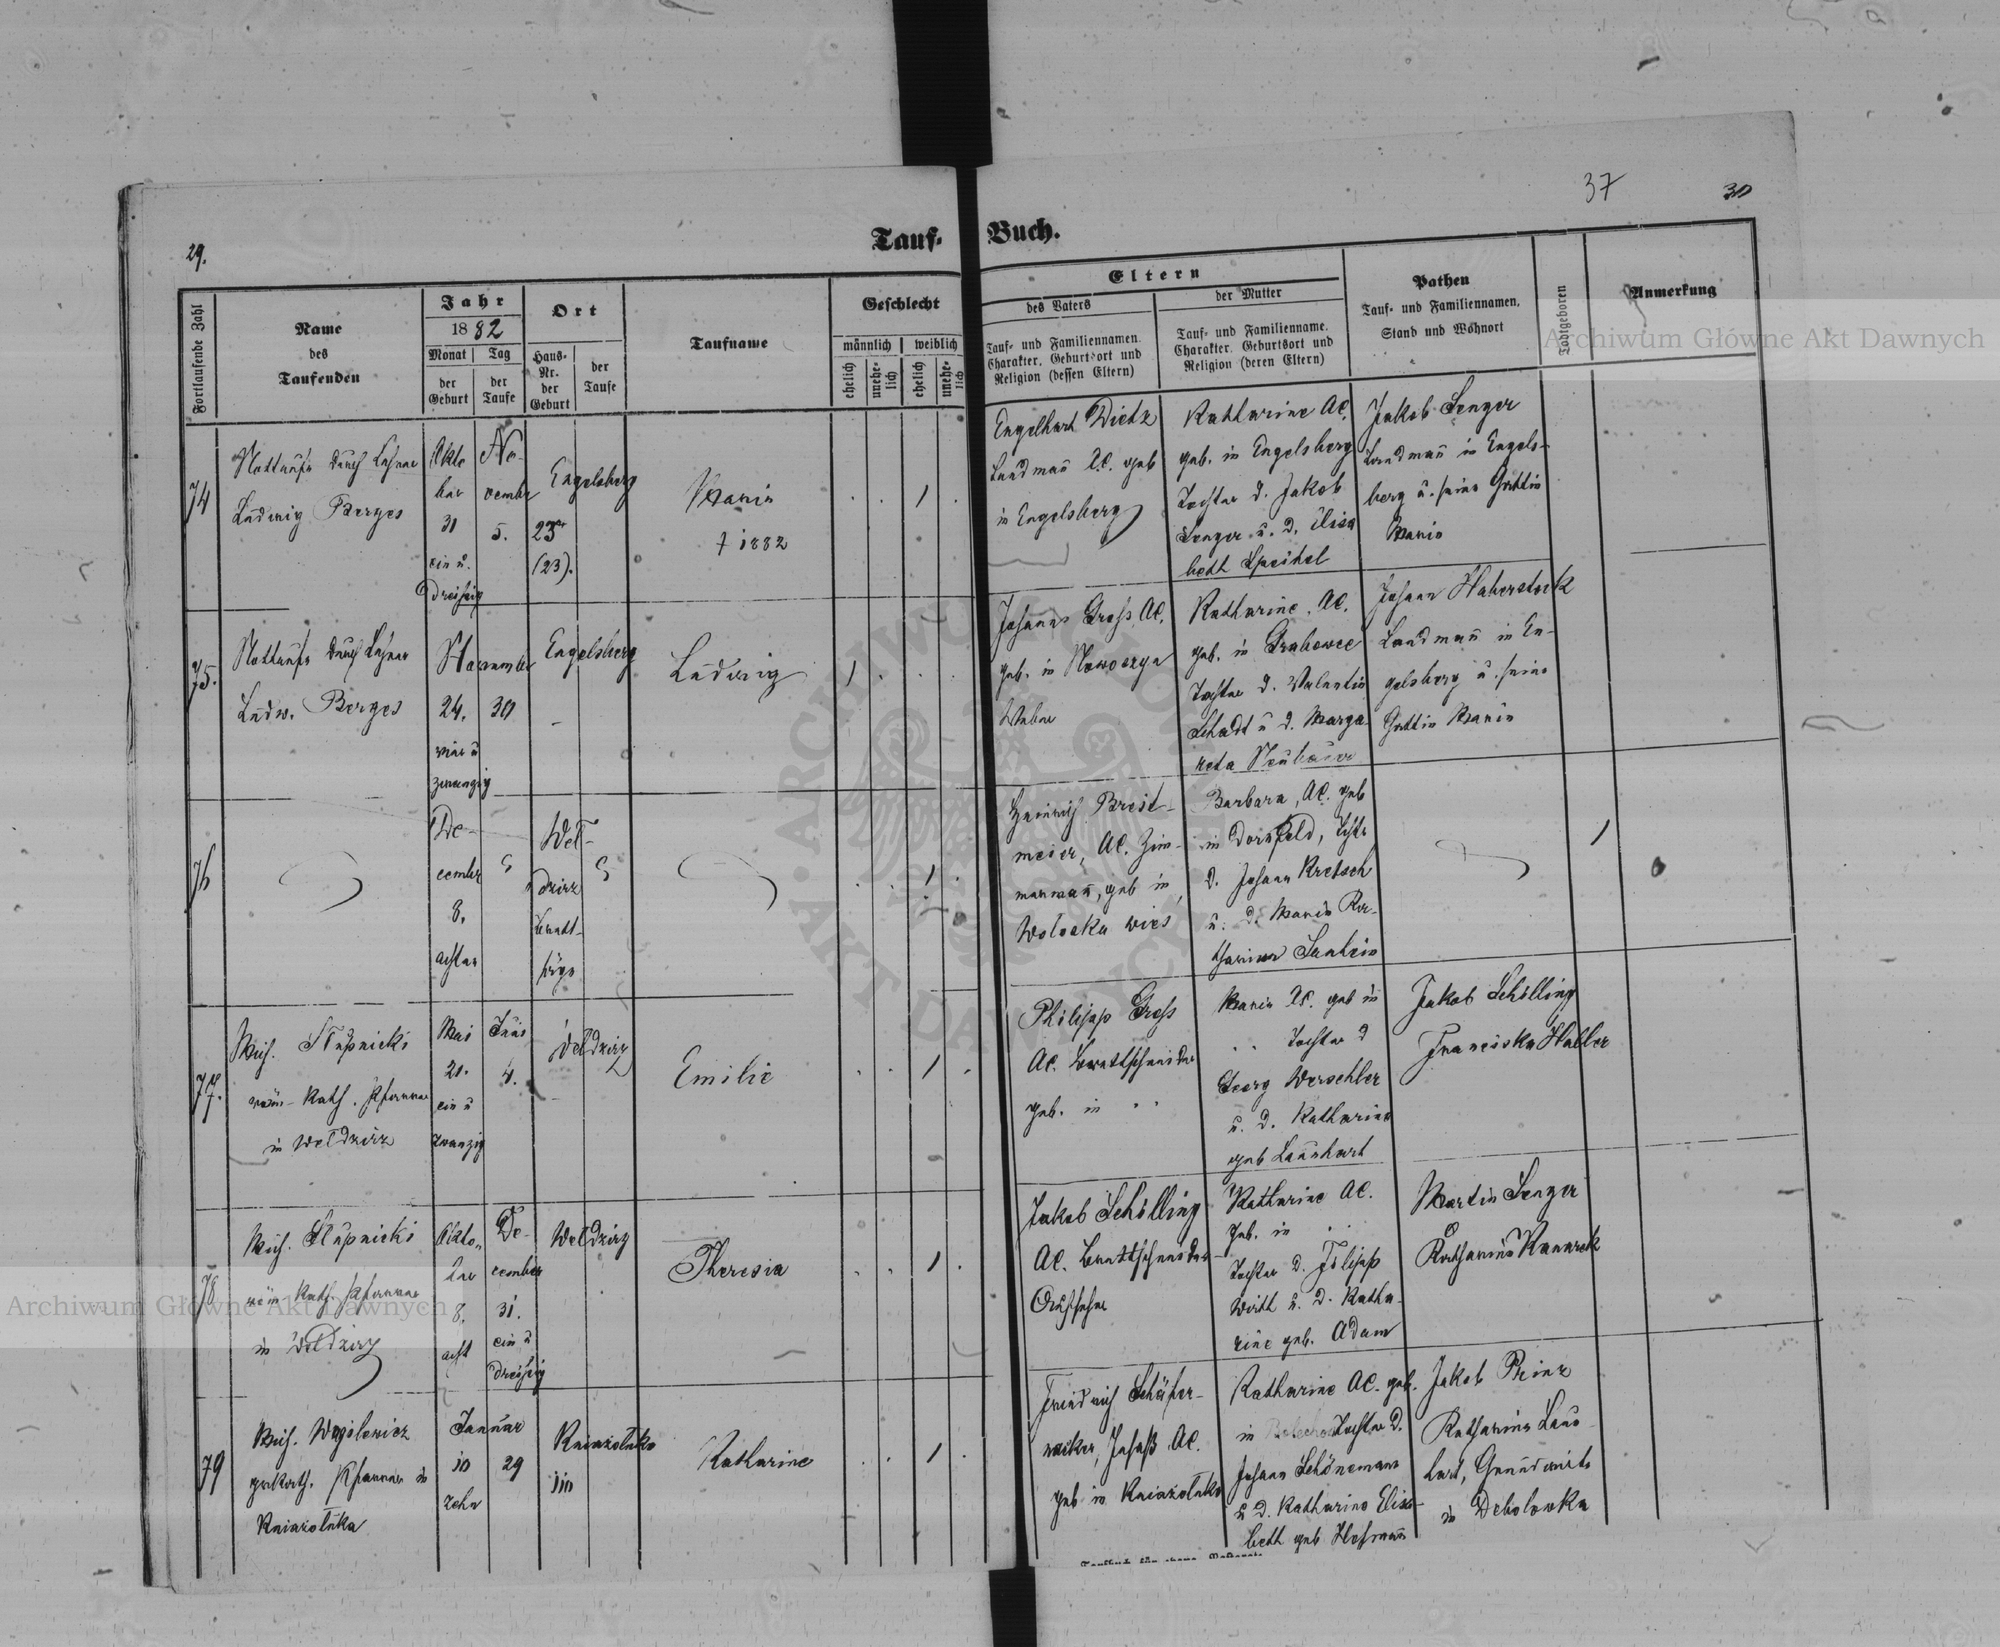 37
30
29.
Tauf-Buch.
Fortlaufende Zahl
Name
des
Taufenden
Jahr
1882
Monat
Tag
der
Geburt
der
Taufe
Ort
Haus-
Nr.
der
Geburt
der
Taufe
Taufname
Geschlecht
männlich
weiblich
ehelich
unehe-
lich
ehelich
unehe-
lich
Eltern
des Vaters
Tauf- und Familiennamen.
Charakter, Geburtsort und
Religion (dessen Eltern)
der Mutter
Tauf- und Familienname.
Charakter, Geburtsort und
Religion (deren Eltern)
Pathen
Tauf- und Familiennamen,
Stand und Wohnort
Todtgeboren
Anmerkung
74
Nottaufe durch Lehrer
Ludwig Berges
Okto
ber
31
ein u.
dreißig
No-
vember
5.
Engelsberg
23
(23).
Maria
† 1882
Engelhart Dietz
Landmann A.C. geb
in Engelsberg
Katharine AC.
geb. in Engelsberg
Tochter d. Jakob
Senger u. d. Elisa
beth Speichel
Jakob Senger
Landmann in Engels-
berg u. seine Gattin
Maria
75.
Nottaufe durch Lehrer
Ludw. Berges
November
24. 30
vier u
zwanzig
Engelsberg
Ludwig
Johann Gross AC.
geb. in Nowosyca
Weber
Katharine. AC.
geb. in Grabowce
Tochter d. Valentin
Schadt u d. Marga
reta Neubauer
Johann Haberstock
Landmann in En-
gelsberg u. seine
Gattin Maria
76
De-
cember
8.
achter
Wel-
dzirz
Heinrich Breit-
meier, AC. Zim-
mermann, geb in
Barbara, AC. geb
in Dornfeld, Tochter
d. Johann Kretsch
u. d. Maria Ka-
tharina
77.
Mich. Slupnicki
röm-Kath. Pfarrer
in Weldzirz
Mai
21.
ein u
zwanzig
Juni
4.
Weldzirz
Emilie
Philipp Gross
AC. Brettschneider
geb. in
Maria AC. geb in
Tochter d
Georg Werschler
u. d. Katharina
geb Launhart
Jakob Schilling
Franciska Haller
78
Mich. Slupnicki
röm-Kath. Pfarrer
in Weldzirz
Okto-
ber
8.
acht
De-
cember
31.
ein u
dreißig
Weldzirz
Theresia
Jakob Schilling
AC. Brettschneider
Katharine AC.
geb. in
Tochter d. Filipp
Wirth u. d. Katha-
rine geb. Adam
Martin Senger
Katharina Kanarek
79
Mich. Wasilewicz
grkath. Pfarrer in
Kniazoluka
Januar
10
zehn
29
Kniazoluka
Katharine
Friedrich Schäfer-
geb in Kniazoluka
Katharine AC. geb.
in Bolechow Tochter d.
Johann Schönemann
u d. Katharine Elisa-
beth geb Hofmann
Jakob Prinz
Katharina Laun-
hart, Grundwirt
in Debolowka
Archiwum Główne Akt Dawnych
Archiwum Główne Akt Dawnych